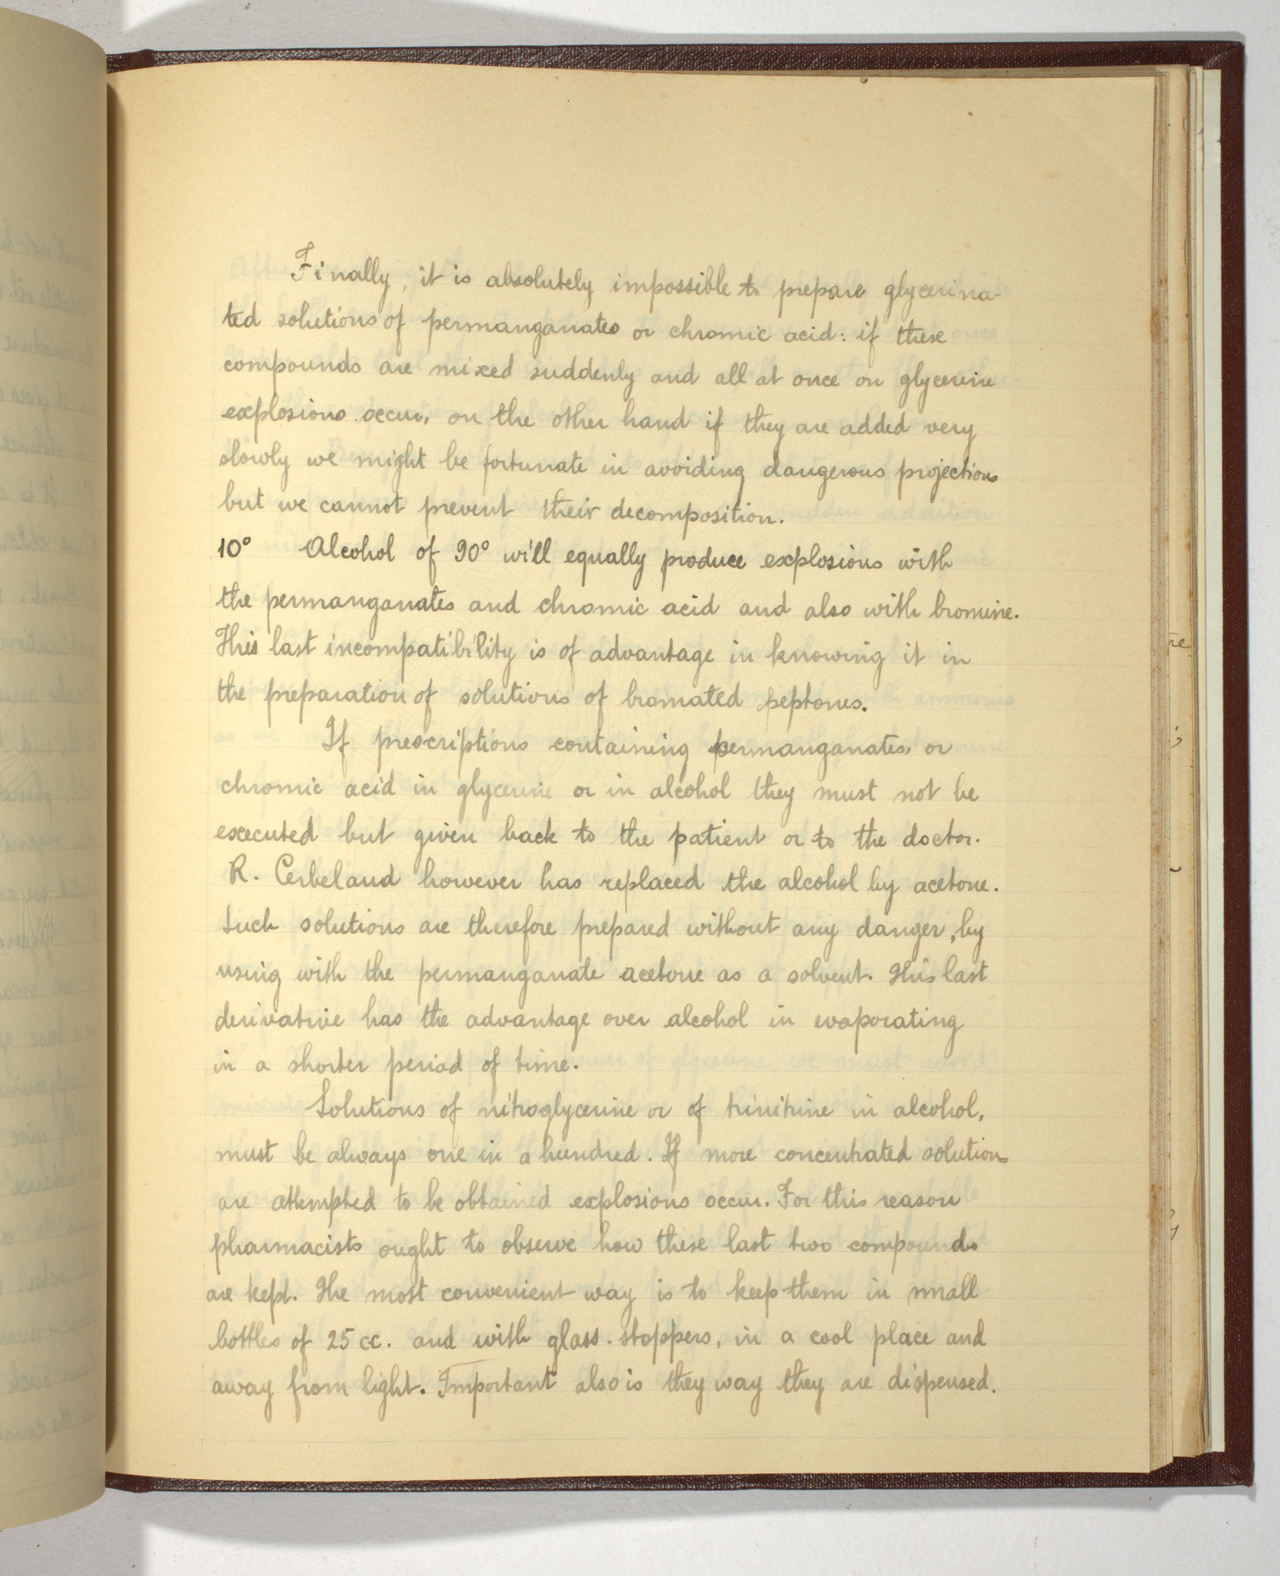 Finally, it is absolutely impossible to prepare glycerina-
ted solutions of permanganates or chromic acid: if these
compounds are mixed suddenly and all at once on glycerine
explosions occur, on the other hand if they are added very
slowly we might be fortunate in avoiding dangerous projections
but we cannot prevent their decomposition.
10° Alcohol of 90° will equally produce explosions with
the permanganates and chromic acid and also with bromine.
This last incompatibility is of advantage in knowing it in
the preparation of solutions of bromated peptones.
If prescriptions containing permanganates or
chromic acid in glycerine or in alcohol they must not be
executed but given back to the patient or to the doctor.
R. Cerbeland however has replaced the alcohol by acetone.
Such solutions are therefore prepared without any danger, by
using with the permanganate acetone as a solvent. This last
derivative has the advantage over alcohol in evaporating
in a shorter period of time.
Solutions of nitroglycerine or of trinitrine in alcohol,
must be always one in a hundred. If more concentrated solution
are attempted to be obtained explosions occur. For this reason
pharmacists ought to observe how these last two compounds
are kept. The most convenient way is to keep them in small
bottles of 25 cc. and with glass-stoppers, in a cool place and
away from light. Important also is they way they are dispensed.